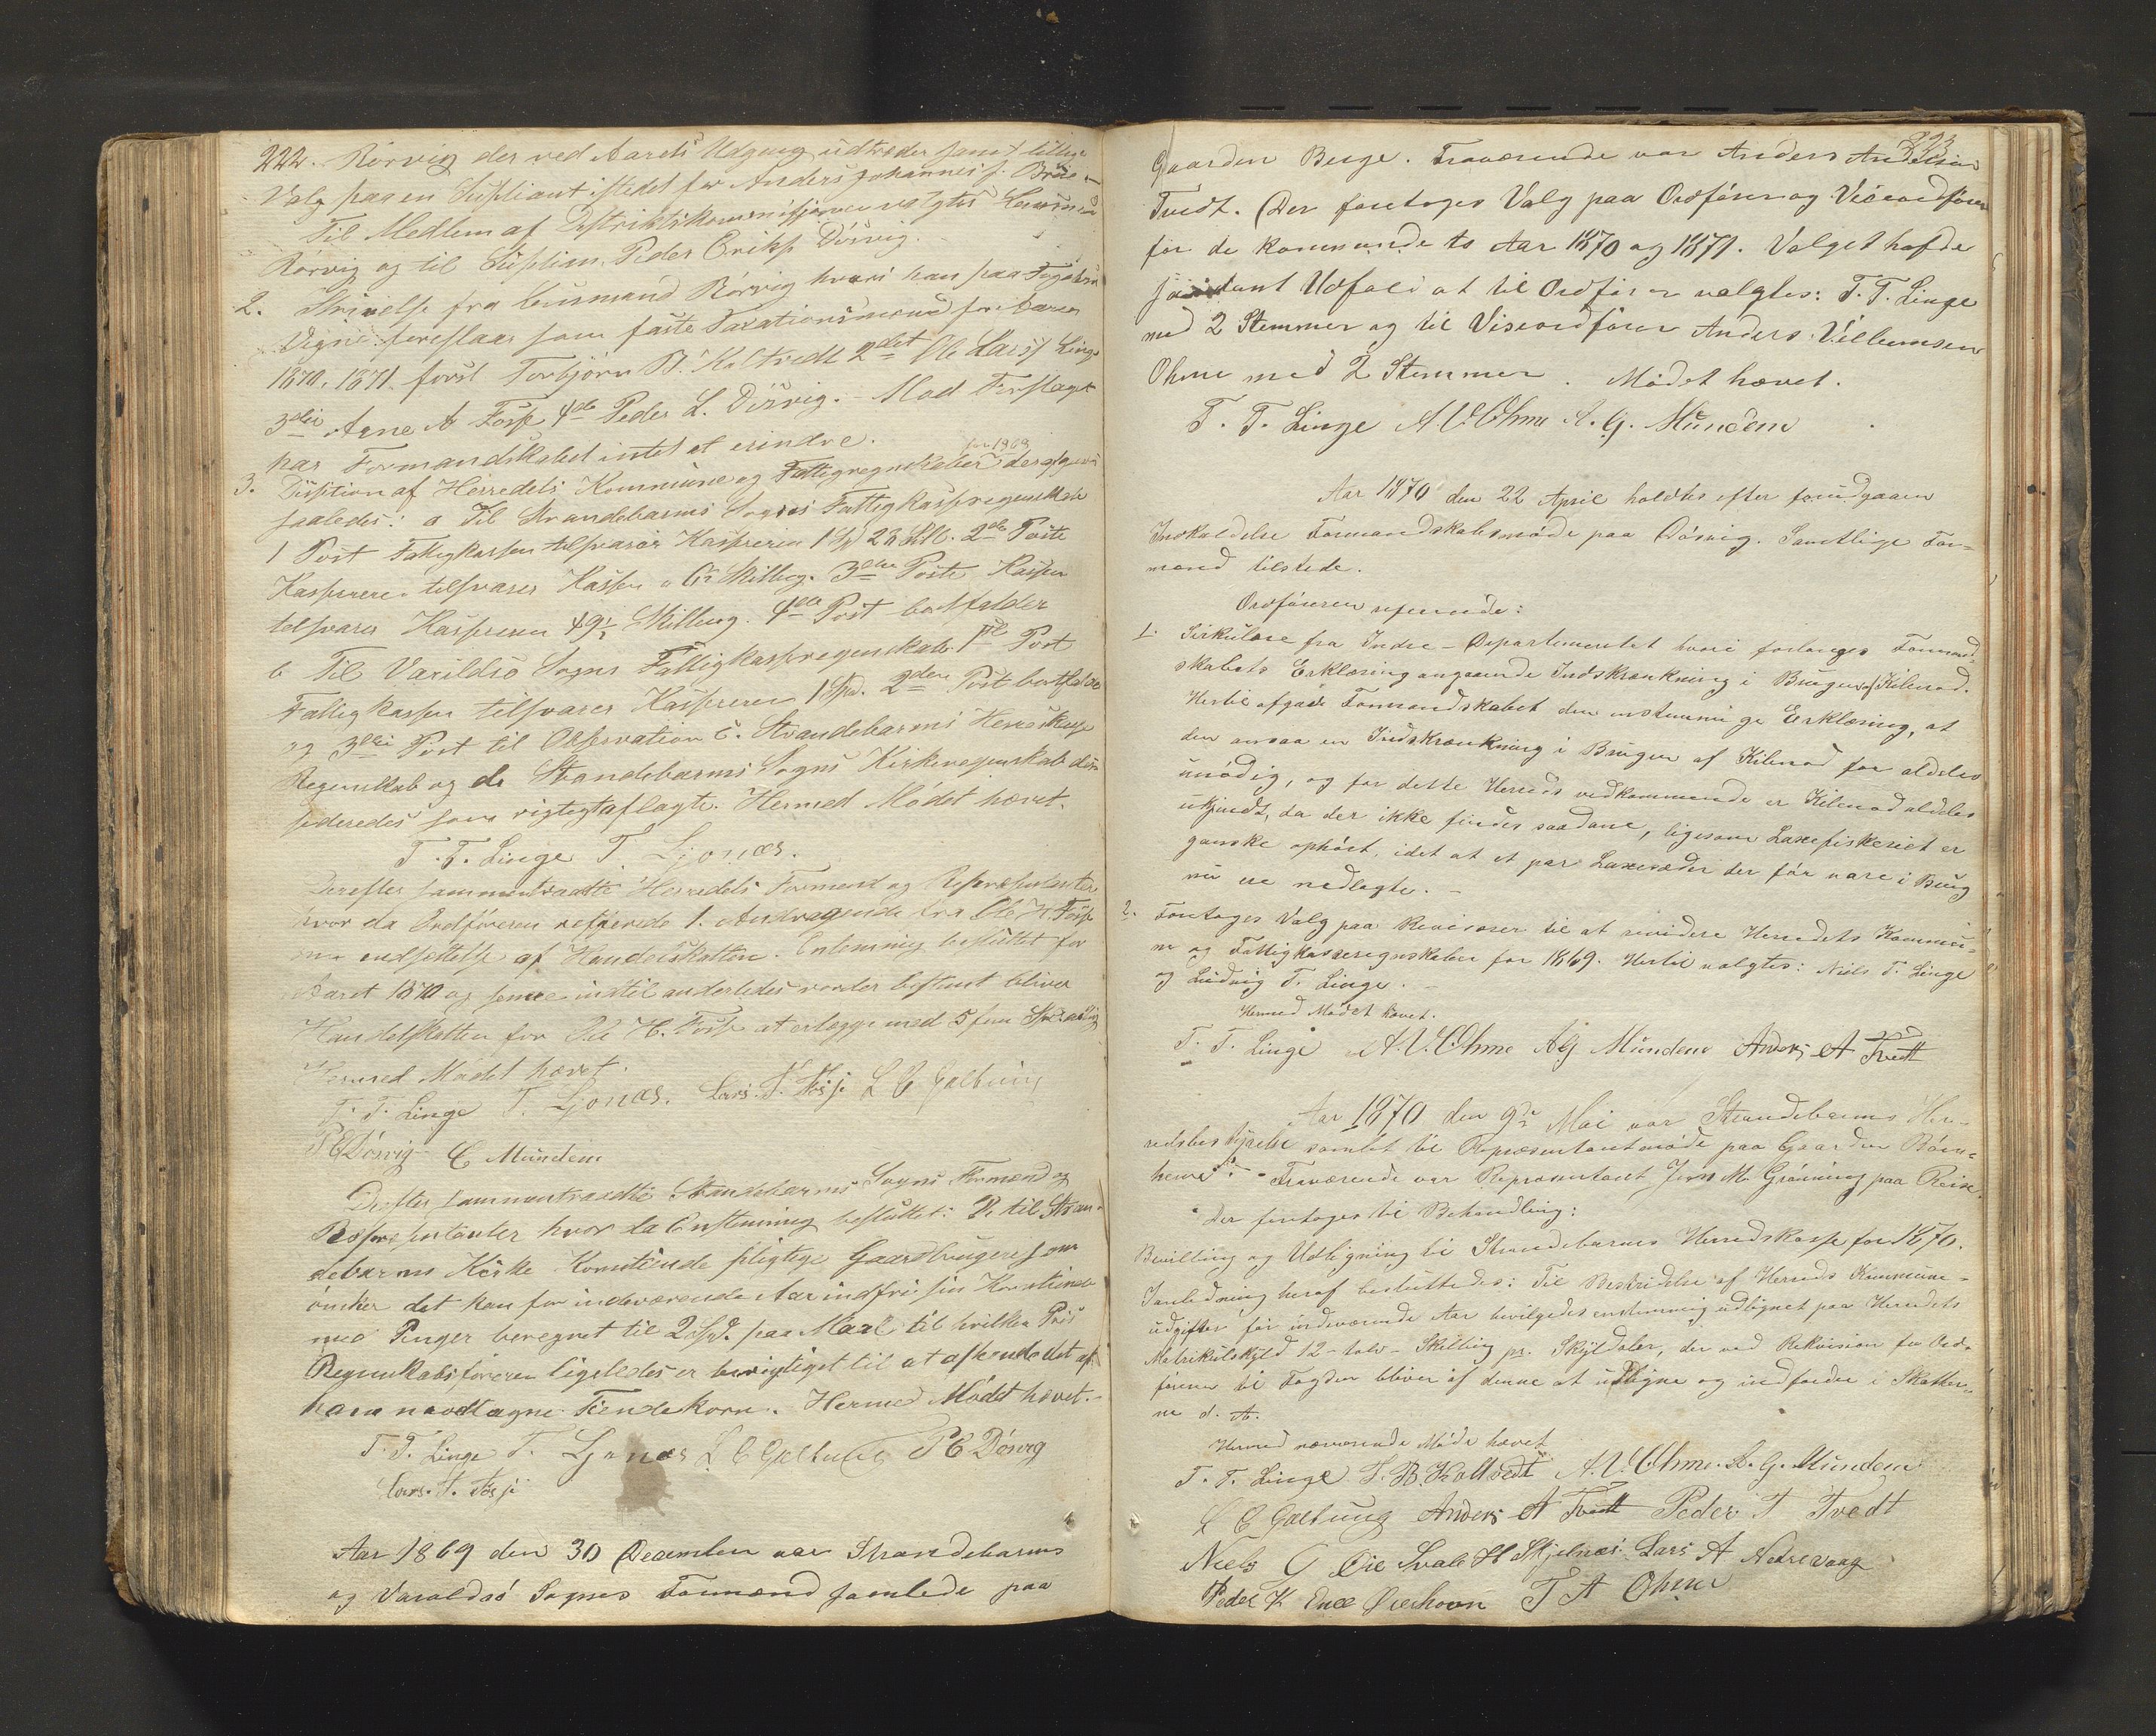 222. Rörvig der ved Aarets Udgang udtræder samt tillige
Valg paa en Supliant istedet for Anders Johanness.
Til Medlem af Distriktskommissjonen valgtes Lensmand
Rörvig og til Suplian Peder Eriks. Dösvig.
2. Skrivelse fra Lensmand Rörvig hvori han paa Fogdens
Vegne foreslaar som faste Taxationsmænd for Aaret
1870, 1871 först Torbjörn B. Koltvedt 2det Ole Larss. Linge
3die Arne A Fosse 4de Peder L. Dösvig. - Mod Forslaget
har Formandskabet intet at erindre.
for 1868
3. Desition af Herredets Kommune og Fattigregnskaber
saaledes: a Til Strandebarms Sogns Fattigkasseregnskab
1 Post Fattigkassen tilsvarer Kassereren 1 Spd 23 Skl. 2de Poste
Kassereren tilsvarer Kassen Skilling. 3die Poste Kassen
tilsvarer Kassereren 49½ Skilling. 4de Post bortfalder
b Til Varildsö Sogns Fattigkasseregnskab 1ste Post
Fattigkassen tilsvarer Kassereren 1 Spd. 2den Post bortfalder
og 3die Post til Observation c. Strandebarms Herredskasse
Regnskab og d. Strandebarms Sogns Kirkeregnskab desi-
sideredes som rigtigt aflagte. Hermed Mödet hævet.
T. T. Linge T. Ljonæs.
Derefter sammentraadte Herredets Formænd og Repræsentanter
hvor da Ordföreren refererede 1. Andragende fra Ole H. Fosse
om nedsættelse af Handelskatten. Enstemmig besluttet for
Aaret 1870 og senere indtil anderledes vorder bestemt bliver
Handelskatten for Ole H. Fosse at erlægge med 5 fem Spd. aarlig
Hermed Mödet hævet.
T. T. Linge T. Ljonæs. Lars. T. Fosse L E Galtung
P E Dösvig E Mundem
Derefter sammentraadte Strandebarms Sogns Formænd og
Repræsentanter hvor da Enstemmig besluttet: De til Stran-
debarms Kirke Korntiende pligtige Gaardbrugere som
önsker det kan for indeværende Aar indfri sin Korntiende
med Penger beregnet til 2 Spd. paa Maal til hvilken Pris
Regnskabsföreren ligeledes er berigtiget til at afhænde det af
ham modtagne Tiendekorn. Hermed Mödet hævet.
T. T. Linge T. Ljonæs L E Galtung P E Dösvig
Lars. T. Fosse
Aar 1869 den 30 December var Strandebarms
og Varaldsö Sognes Formænd samlede paa
223
Gaarden Berge. Fraværende var Anders Andersen
Tvedt. Der foretoges Valg paa Ordförer og Viceordförer
for de kommende to Aar 1870 og 1871. Valget hafde
saadant Udfald at til Ordförer valgtes: T. T. Linge
med 2 Stemmer og til Viseordförer Anders Villumsen
Ohme med 2 Stemmer. Mödet hævet.
T. T. Linge A. V. Ohme A. G. Mundem
Aar 1870 den 22 April holdtes efter forudgaaen
Indkaldelse Formandskabsmöde paa Dösvig. Samtlige For-
mænd tilstede.
Ordföreren refererede:
1. Sirkulære fra Indre-Departementet hvori forlanges Formand-
skabets Erklæring angaaende Indskrænkning i Brugen af Kilenod.
Hertil afgav Formandskabet den enstemmige Erklæring, at
den ansaa en Indskrænkning i Brugen af Kilenod for aldeles
unödig, og for dette Herreds vedkommende er Kilenod aldeles
ukjendt, da der ikke findes saadane, ligesom Laxefiskeriet er
ganske ophört, idet at et par Laxevæder der för vare i Brug
nu ere nedlagte. -
2. Foretoges Valg paa Revisorer til at revidere Herredets Kommu-
ne og Fattigkasseregnskaber for 1869. Hertil valgtes: Niels T. Linge
og Ludvig T. Linge. -
Hermed Mödet hævet.
T. T. Linge A. V. Ohme A G Mundem Anders A Tvedt
Aar 1870 den 9de Mai var Strandebarms Her-
redsbestyrelse samlet til Repræsentantmöde paa Gaarden Börs-
heim. - Fraværende var Repræsentant Jens M. Gröning paa Reise.
Der foretoges til Behandling:
Bevilling og Udligning til Strandebarms Herredskasse for 1870.
I anledning heraf besluttedes: Til Bestridelse af Herreds Kommune-
udgifter for indeværende Aar bevilgedes enstemmig udlignet paa Herredets
Matrikulskyld 12 - tolv - Skilling pr. Skylddaler, der ved Rekvisition fra Ord-
föreren til Fogden bliver af denne at udligne og indfordre i Skatter-
ne d. A.
Hermed nærværende Möde hævet
T. T. Linge T. B. Koltvedt A. V. Ohme. A. G. Mundem
L E Galtung Anders A Tvedt Peder T Tvedt
Niels Ole Svale H Skjelnæs Lars A Netrevaag
Peder K Enes T A Ohme